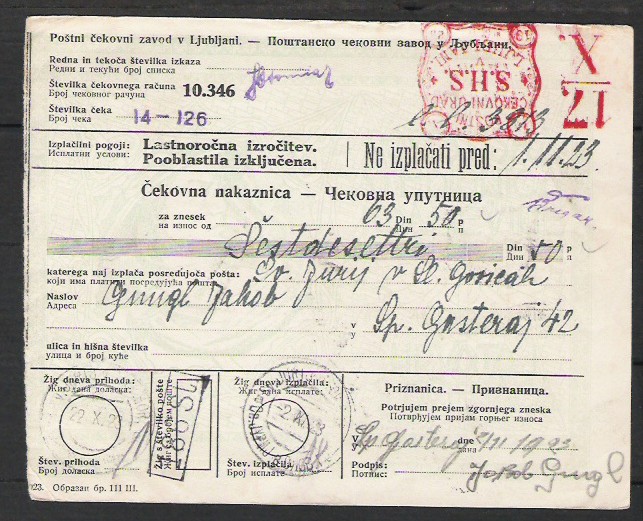 Poštni čekovni zavod v Ljubljani. — Поштанско чековни завод у Љубљани.
Redna in tekoča številka izkaza
Редни и текући број списка
Številka čekovnega računa
Број чековног рачуна
10.346
Številka čeka
Број чека
14 - 126
S.H.S.
ČEKOVNI URAD
X.
21
Izplačilni pogoji:
Исплатни услови:
Lastnoročna izročitev.
Pooblastila izključena.
Ne izplačati pred:
1.11.23
Čekovna nakaznica — Чековна упутница
za znesek
на износ од
63 Din 50 p
Дин п
Šestdesettri
Din 50 p
Дин п
katerega naj izplača posredujoča pošta:
који има платити посредујућа пошта:
Sv. Jurij v Sl. Goricah
Naslov
Адреса
Gungl Jakob
v
у
Sp. Gasteraj 42
ulica in hišna številka
улица и број куће
Žig dneva prihoda:
Жиг дана доласка:
22.X.23
Štev. prihoda
Број доласка
Žig s številko pošte
Жиг са бројем поште
Žig dneva izplačila:
Жиг дана исплате:
-2.XI.23
Štev. izplačila
Број исплате
Priznanica. — Признаница.
Potrjujem prejem zgornjega zneska
Потврђујем пријам горњег износа
Sp. Gasteraj dne 2/11 1923
дана
Podpis:
Потпис:
Jakob Gungl
923. Образац бр. III III.